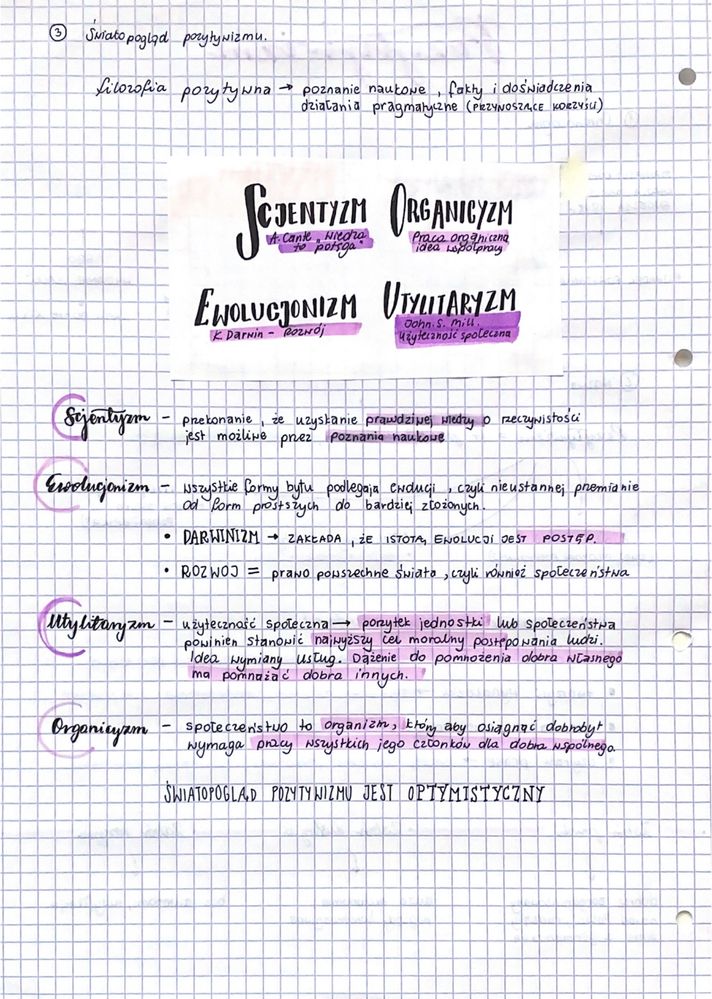 3 Światopogląd pozytywizmu.
filozofia pozytywna → poznanie naukowe, fakty i doświadczenia
działania pragmatyczne (PRZYNOSZĄCE KORZYŚCI)
SCJENTYZM ORGANICYZM
A. Comte „Wiedza to potęga" Praca organiczna idea współpracy
EWOLUCJONIZM UTYLITARYZM
K. Darwin - Rozwój John. S. Mill. użyteczność społeczna
Scjentyzm - przekonanie, że uzyskanie prawdziwej wiedzy o rzeczywistości
jest możliwe przez poznania naukowe
Ewolucjonizm - wszystkie formy bytu podlegają ewolucji, czyli nieustannej przemianie
od form prostszych do bardziej złożonych.
• DARWINIZM → ZAKŁADA, ŻE ISTOTĄ EWOLUCJI JEST POSTĘP.
• ROZWÓJ = prawo powszechne świata, czyli również społeczeństwa
Utylitaryzm - użyteczność społeczna → pożytek jednostki lub społeczeństwa
powinien stanowić najwyższy cel moralny postępowania ludzi.
Idea wymiany usług. Dążenie do pomnożenia dobra własnego
ma pomnażać dobra innych.
Organicyzm - społeczeństwo to organizm, który aby osiągnąć dobrobyt
wymaga pracy wszystkich jego członków dla dobra wspólnego.
ŚWIATOPOGLĄD POZYTYWIZMU JEST OPTYMISTYCZNY